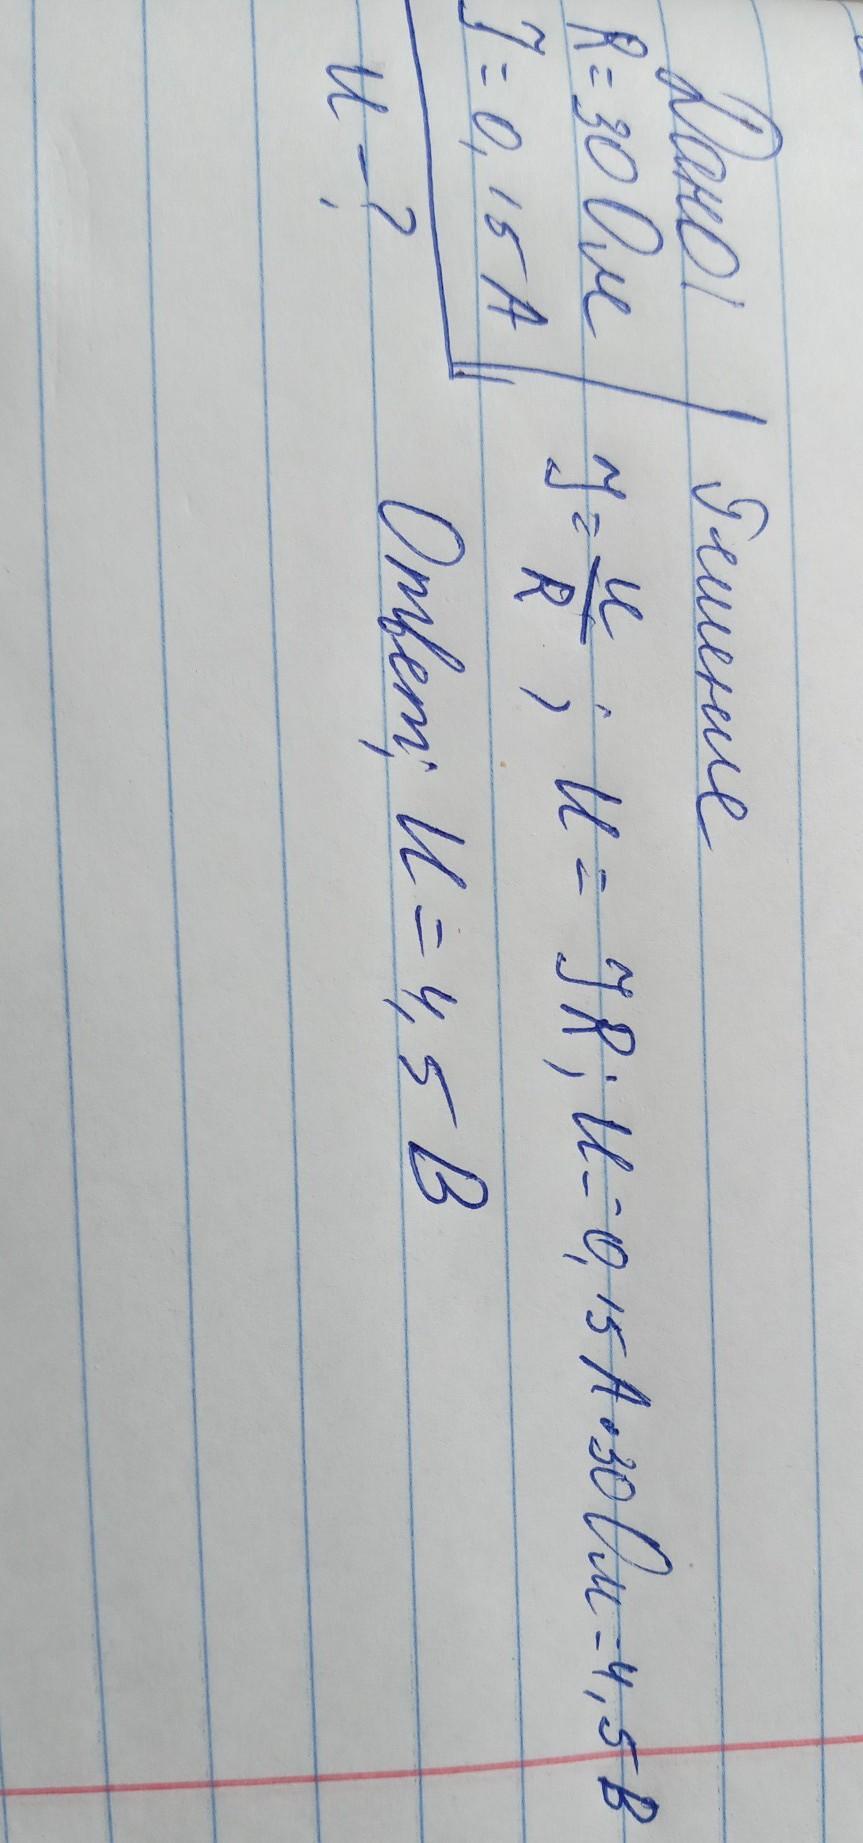 Дано:
R=30 Ом
J=0,15 А
U-?
Решение
J=U/R; U= JR; U=0,15 А•30 Ом=4,5 В
Ответ; U=4,5 В